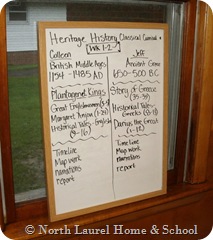 Heritage History Classical Curricul
Wk 1-2
Colleen
British Middle Ages
1154 - 1485 AD
Plantagenet Kings
Great Englishwomen
Historical Tales - English
(8-16)
Timeline
Map work
narrations
report
Jeff
Ancient Greece
1650-500 BC
Story of Greece
(35-39)
Historical Tales-
Greeks (8-11)
Darius the Great
(1-12)
Timeline
Map work
narrations
report
© North Laurel Home & School